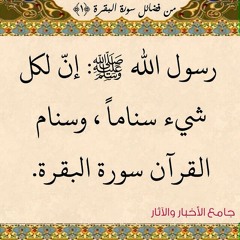 من فضائل سورة البقرة ﴿١﴾
رسول الله ﷺ: إنّ لكل
شيء سناماً، وسنام
القرآن سورة البقرة.
جامع الأخبار والآثار